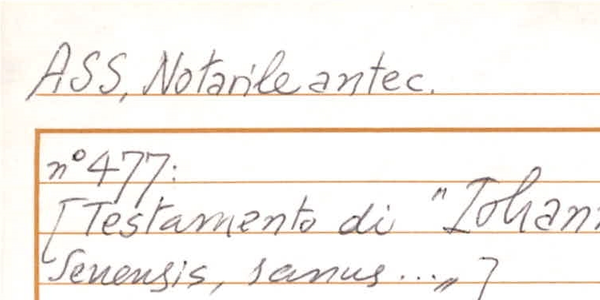 ASS, Notarile antec.
n° 477:
[Testamento di "Iohann
Senensis, sanus..."]